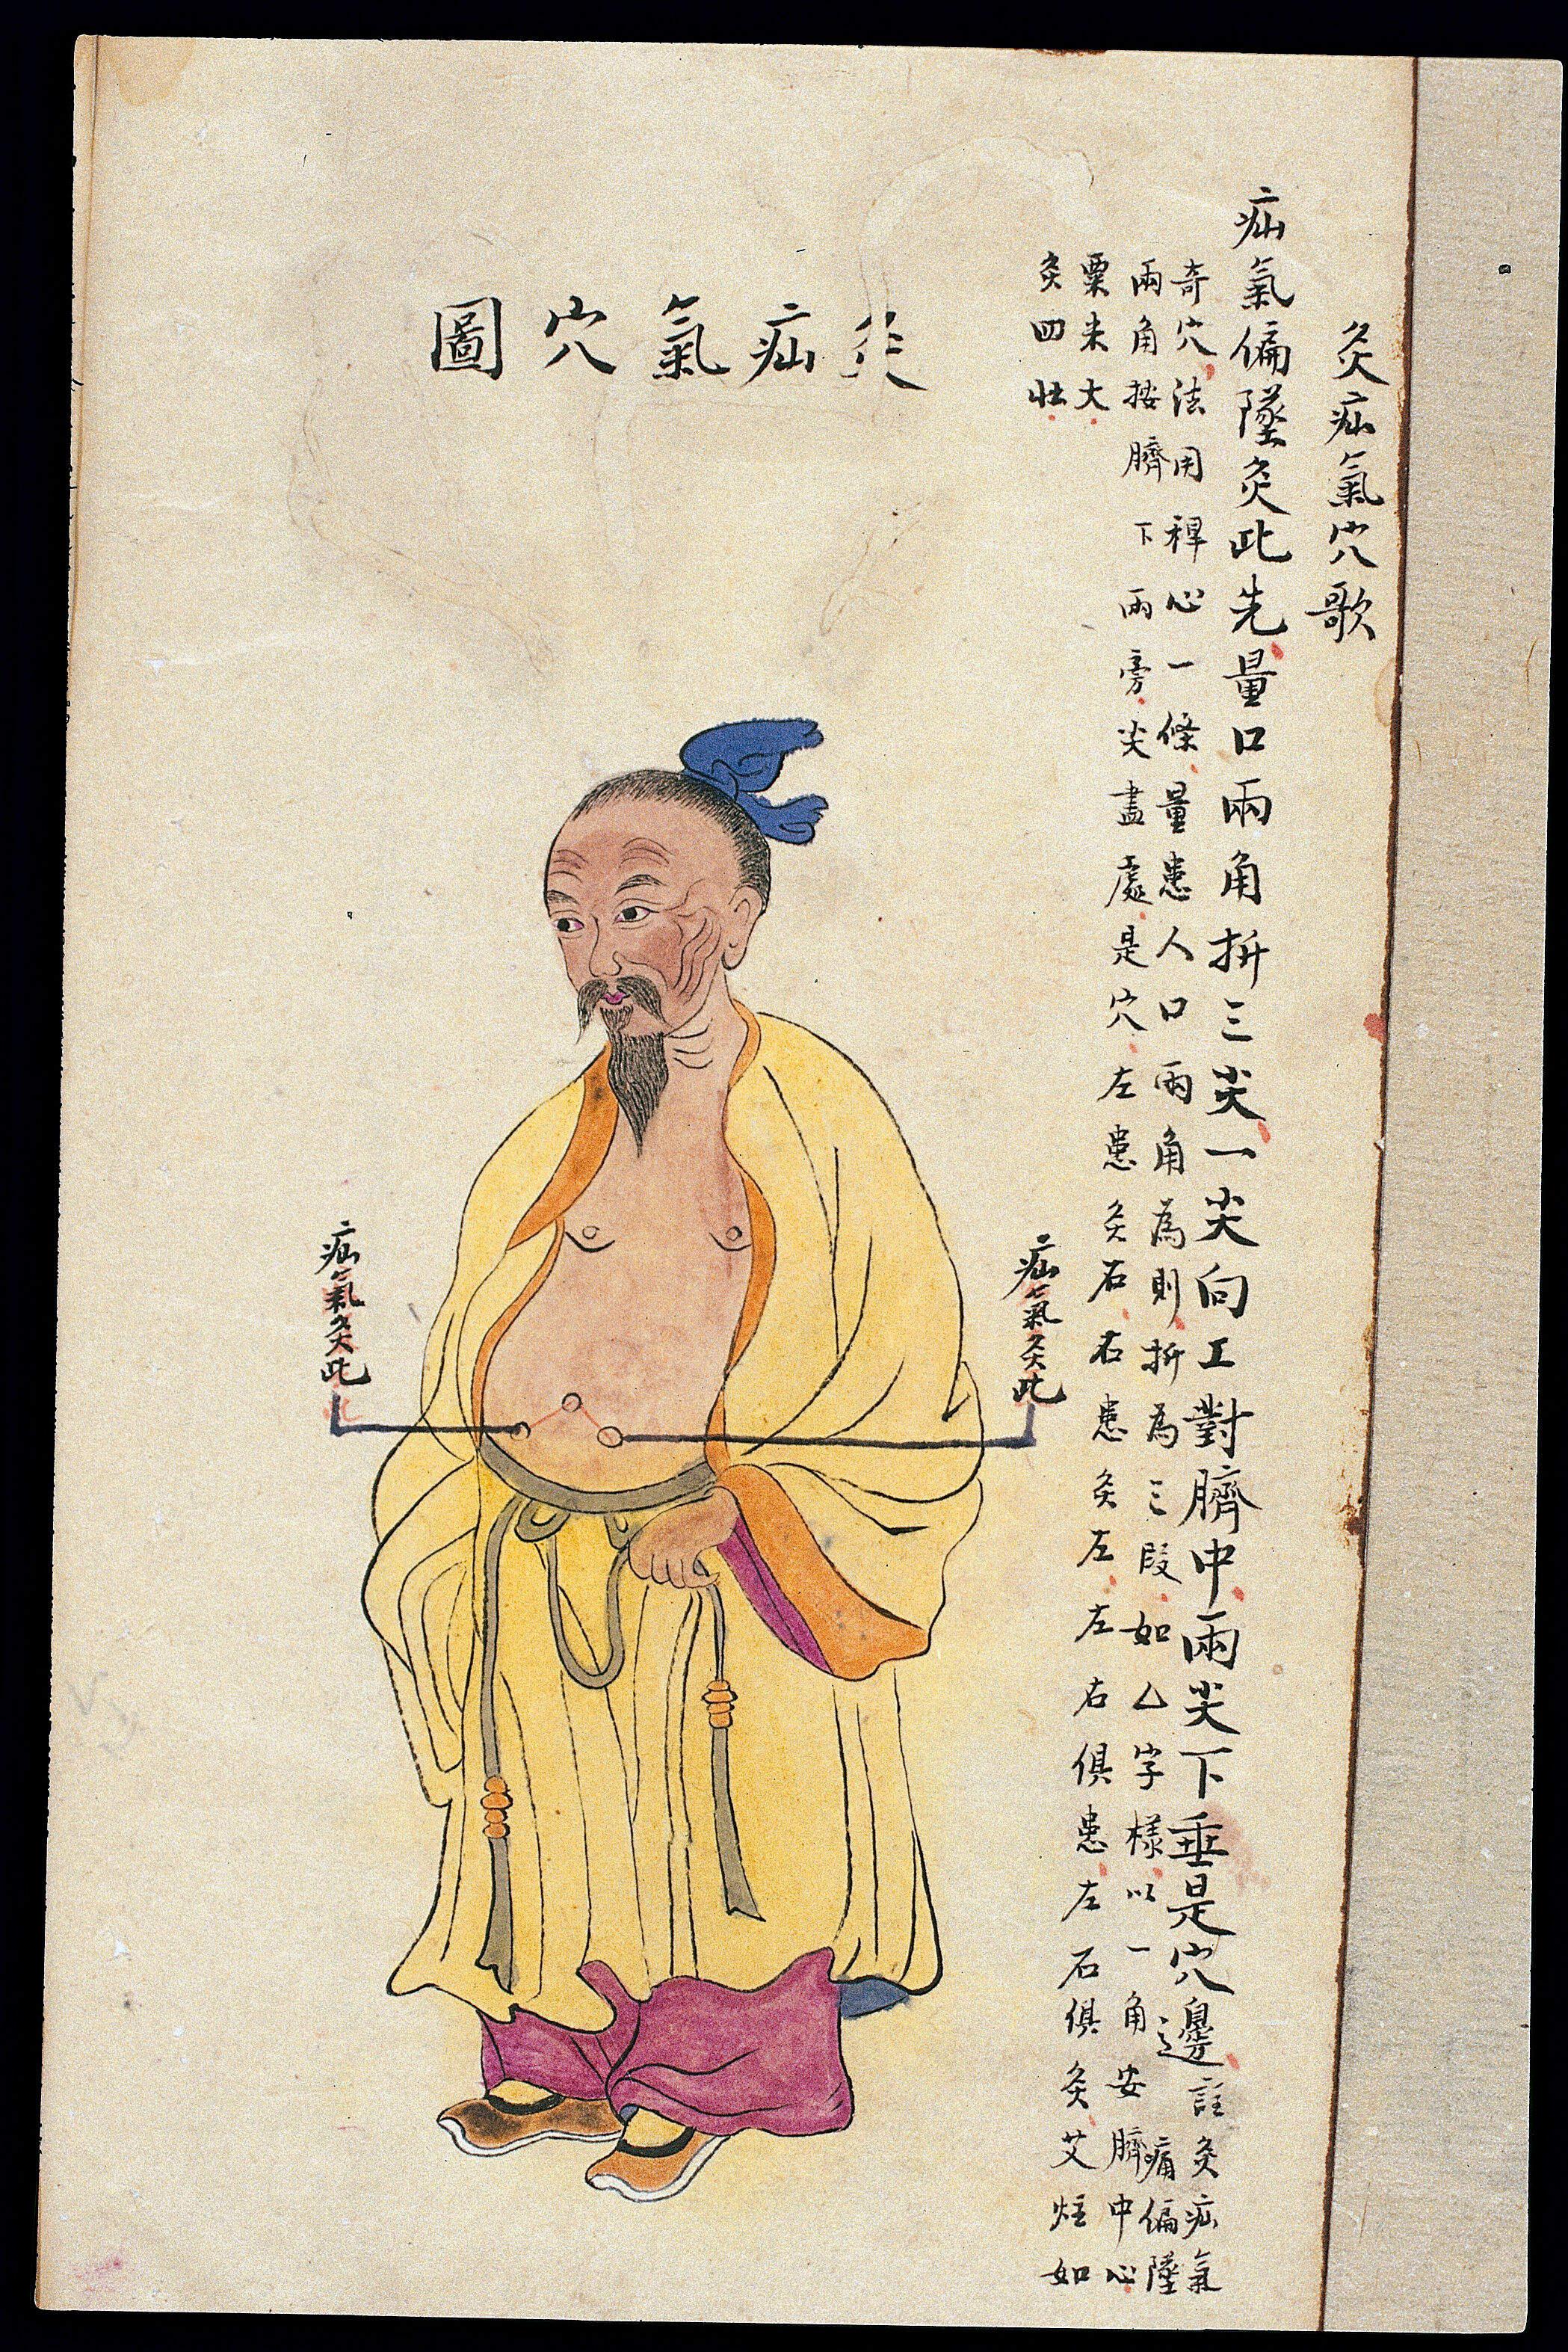 灸疝氣穴歌
疝氣偏墜灸此先量口兩角折三尖一尖向上對臍中兩尖下垂是穴邊
註灸疝氣
痛偏墜
奇穴法用稈心一條量患人口兩角為則折為三段如厶字樣以一角安臍中心
兩角按臍下兩旁尖盡處是穴左患灸右右患灸左左右俱患左右俱灸艾炷如
粟米大
灸四壯
灸疝氣穴圖
疝氣灸此
疝氣灸此